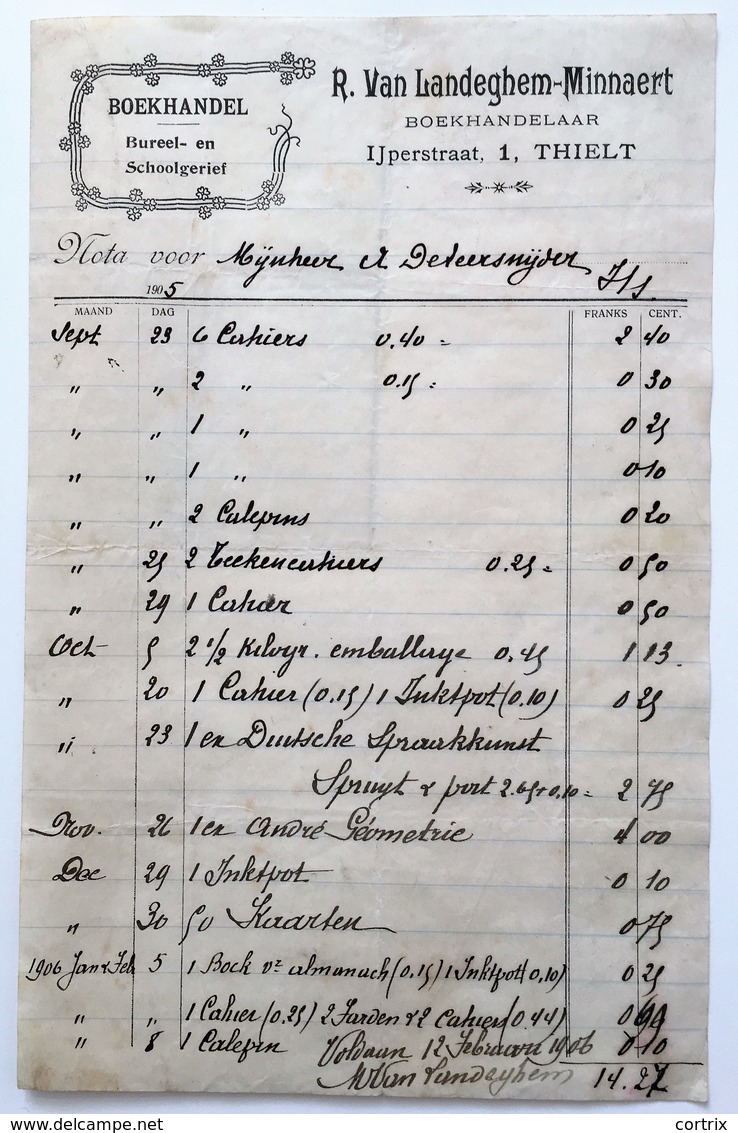 BOEKHANDEL
Bureel- en
Schoolgerief
R. Van Landeghem-Minnaert
BOEKHANDELAAR
IJperstraat, 1, THIELT
Nota voor Mijnheer A Deneersnijder
1905
MAAND DAG FRANKS CENT.
Sept 23 6 Cahiers 0.40 = 2 40
" " 2 " 0.15 = 0 30
" " 1 " 0 25
" " 1 " 0 10
" " 2 Calepins 0 20
" 25 2 Teekencahiers 0.25 = 0 50
" 29 1 Cahier 0 50
Oct 5 2 1/2 Kilogr. emballage 0,45 1 13
" 20 1 Cahier (0.15) 1 Inktpot (0.10) 0 25
" 23 1 ex Duitsche Spraakkunst
Spruyt & port 2.65+0,10 = 2 75
Nov. 26 1 ex André Géometrie 4 00
Dec 29 1 Inktpot 0 10
" 30 50 Kaarten 0 75
1906 Jan & Feb 5 1 Bock vr almanach (0.15) 1 Inktpot (0,10) 0 25
" " 1 Cahier (0.25) 2 Farden & 2 Cahiers (0.44) 0 69
" 8 1 Calepin 0 10
Voldaan 12 Februari 1906
M Van Landeghem 14.27
cortrix